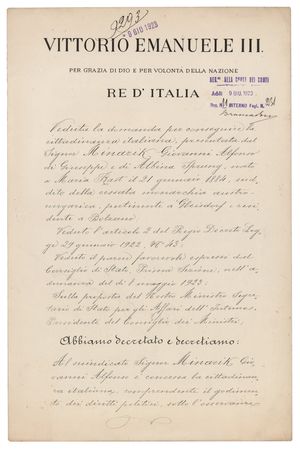 9293
9 GIU 1923
VITTORIO EMANUELE III.
PER GRAZIA DI DIO E PER VOLONTA DELLA NAZIONE
REG.to ALLA CORTE DEI CONTI
Addì 9 GIU. 1923
RE D' ITALIA
Reg. INTERNO Fogl. N.
Veduta la domanda per conseguire la
cittadinanza italiana, presentata dal
Signor Minarik Giovanni Alfonso
di Giuseppe e di Albina Sprung, nato
a Maria Rast il 21 gennaio 1884, sud=
dito della cessata monarchia austro
ungarica, pertinente a Gleisdorf e resi=
dente a Bolzano.
Veduto l'articolo 2 del Regio Decreto Leg=
ge 29 gennaio 1922, N° 43;
Veduto il parere favorevole espresso dal
Consiglio di Stato, Prima Sezione, nell'a=
dunanza del dì 1 maggio 1923;
Sulla proposta del Nostro Ministro Segre=
tario di Stato per gli Affari dell'Interno,
Presidente del Consiglio dei Ministri,
Abbiamo decretato e decretiamo:
Al suindicato Signor Minarik Gio=
vanni Alfonso è concessa la cittadinan=
za italiana, comprendente il godimen=
to dei diritti politici, sotto l'osservanza